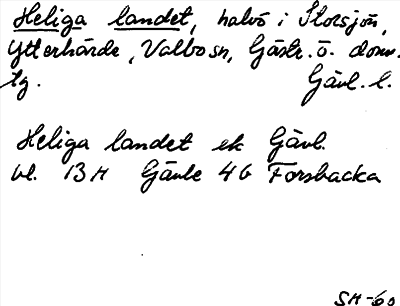 Heliga landet, halvö i Storsjön,
Ytterhärde, Valbo sn, Gästr. ö. doms.
tg. Gävl. l.
Heliga landet ek Gävl.
bl. 13H Gävle 4b Forsbacka
SH-60